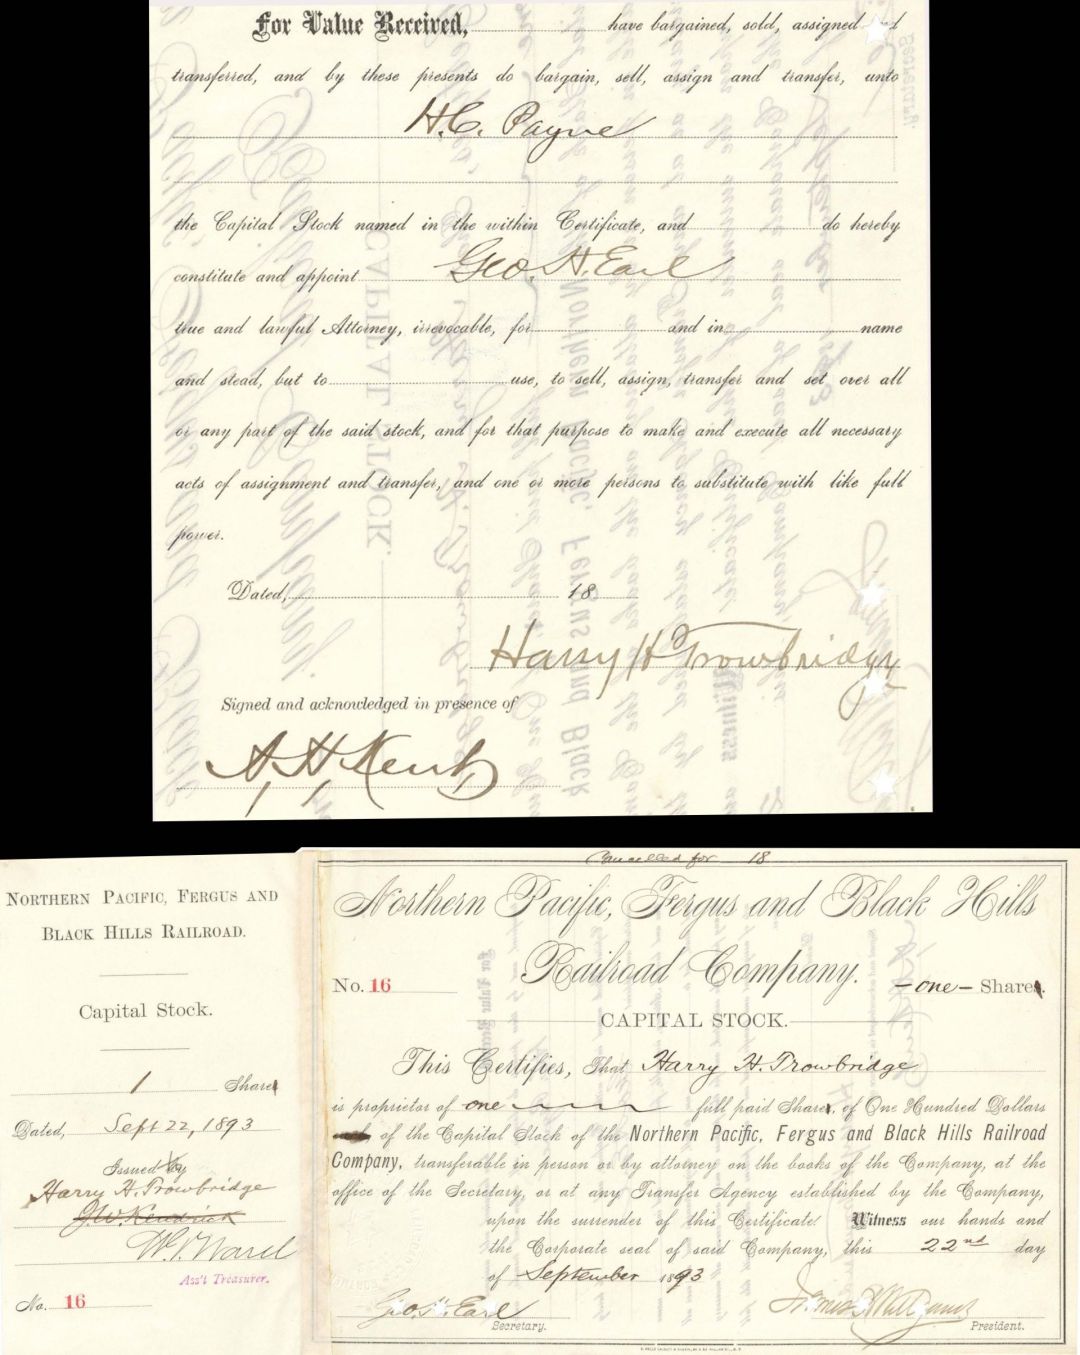 For Value Received, have bargained, sold, assigned and
transferred, and by these presents do bargain, sell, assign and transfer, unto
H.C. Payne
the Capital Stock named in the within Certificate, and do hereby
constitute and appoint Geo. H. Earl
true and lawful Attorney, irrevocable, for and in name
and stead, but to use, to sell, assign, transfer and set over all
or any part of the said stock, and for that purpose to make and execute all necessary
acts of assignment and transfer, and one or more persons to substitute with like full
power.
Dated, 18
Harry H Trowbridge
Signed and acknowledged in presence of
A. H. Kent
NORTHERN PACIFIC, FERGUS AND
BLACK HILLS RAILROAD.
Capital Stock.
1 Share
Dated, Sept 22, 1893
Issued by
Harry H. Trowbridge
J.W. Kendrick
Ward
Ass't Treasurer.
No. 16
Cancelled for 18
Northern Pacific, Fergus and Black Hills
Railroad Company.
No. 16 -one- Share.
CAPITAL STOCK.
This Certifies, That Harry H. Trowbridge
is proprietor of one full paid Share, of One Hundred Dollars
of the Capital Stock of the Northern Pacific, Fergus and Black Hills Railroad
Company, transferable in person or by attorney on the books of the Company, at the
office of the Secretary, or at any Transfer Agency established by the Company,
upon the surrender of this Certificate. Witness our hands and
the Corporate seal of said Company, this 22nd day
of September 1893
Geo. H. Earl
Secretary. President.